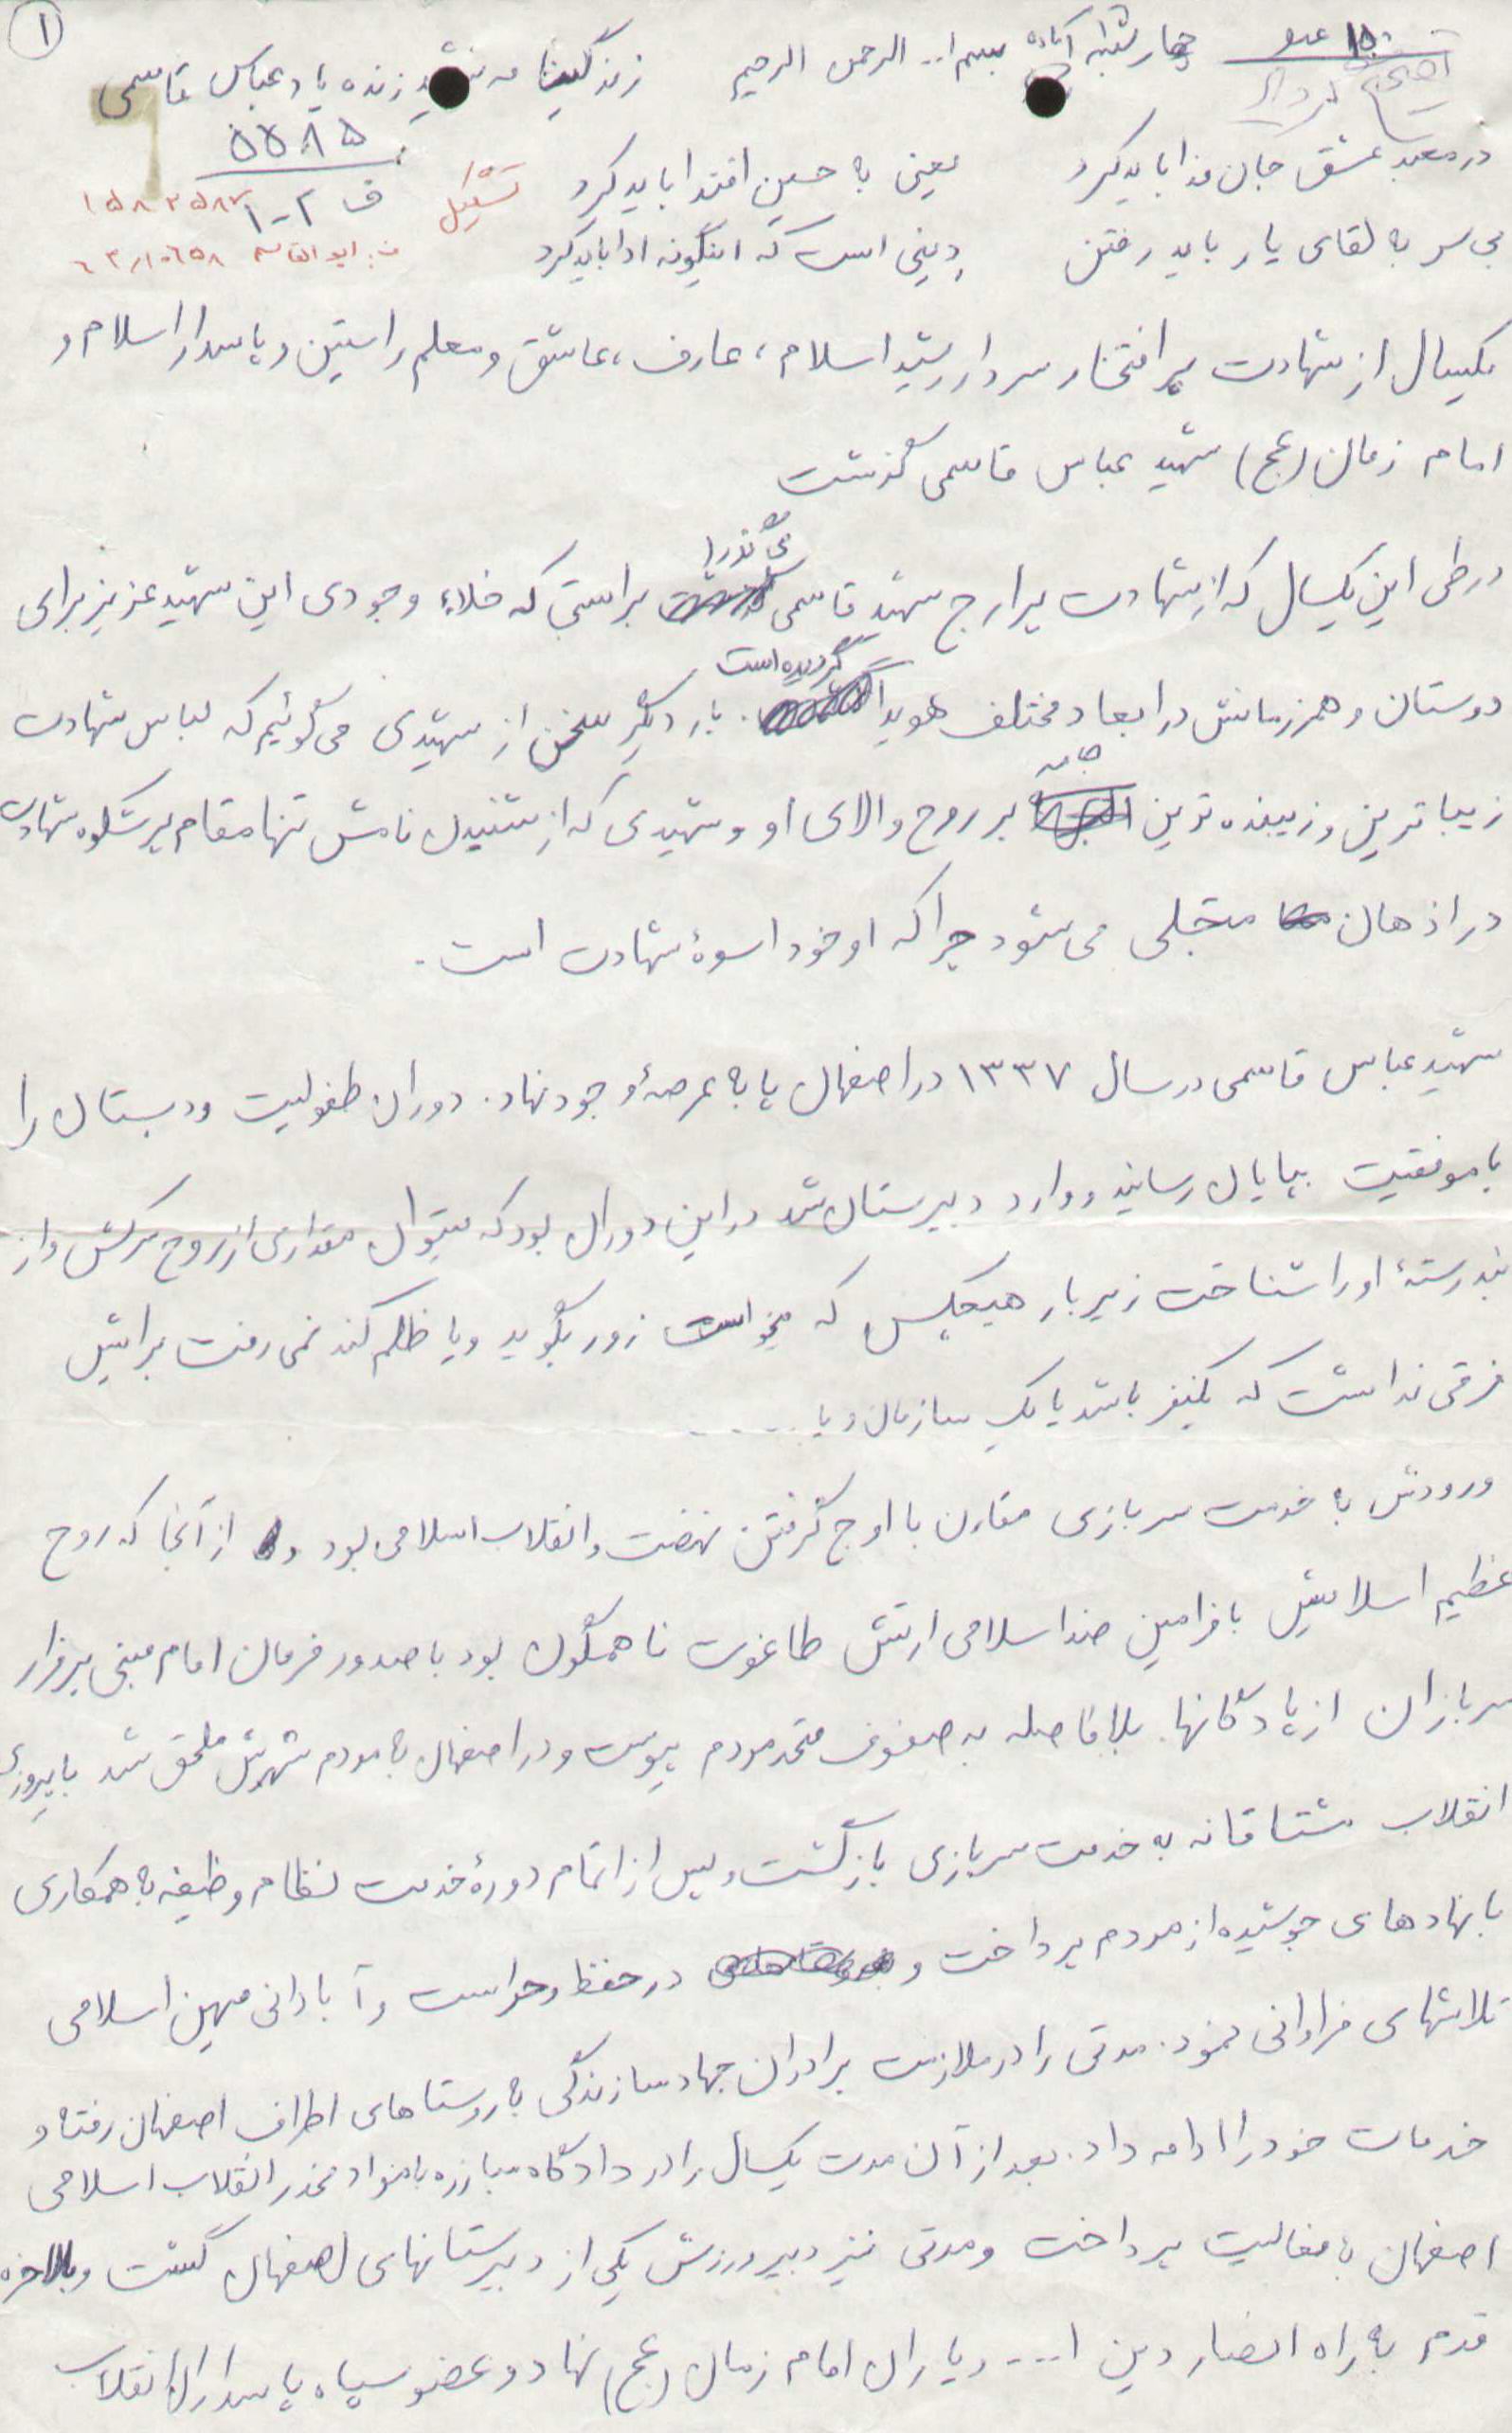 ۱
۱۵۰ عدد
چهارشنبه آماده بسم ا... الرحمن الرحیم زندگینامه شهید زنده یاد عباس قاسمی
۵۵۸۵
ف ۲-۱
در معبد عشق جان فدا باید کرد یعنی به حسین اقتدا باید کرد
بی سر به لقای یار باید رفتن دینی است که اینگونه ادا باید کرد
یکسال از شهادت پر افتخار سردار رشید اسلام، عارف، عاشق و معلم راستین و پاسدار اسلام و
امام زمان (عج) شهید عباس قاسمی گذشت
در طی این یکسال که از شهادت پر ارج شهید قاسمی می گذرد براستی که خلاء وجودی این شهید عزیز برای
دوستان و همرزمانش در ابعاد مختلف هویدا گردیده است. بار دیگر سخن از شهیدی می گوئیم که لباس شهادت
زیباترین و زیبنده ترین جامه بر روح والای او و شهیدی که از شنیدن نامش تنها مقام پر شکوه شهادت
در اذهان متجلی می شود چرا که او خود اسوهٔ شهادت است.
شهید عباس قاسمی در سال ۱۳۳۷ در اصفهان پا به عرصهٔ وجود نهاد. دوران طفولیت و دبستان را
با موفقیت بپایان رسانید و وارد دبیرستان شد در این دوران بود که میتوان مقداری از روح سرکش و از
بند رستهٔ او را شناخت زیر بار هیچکس که میخواست زور بگوید و یا ظلم کند نمی رفت برایش
فرقی نداشت که یکنفر باشد یا یک سازمان و یا .....
ورودش به خدمت سربازی مقارن با اوج گرفتن نهضت و انقلاب اسلامی بود و از آنجا که روح
عظیم اسلامیش با فرامین ضد اسلامی ارتش طاغوت ناهمگون بود با صدور فرمان امام مبنی بر فرار
سربازان از پادگانها. بلافاصله به صفوف متحد مردم پیوست و در اصفهان به مردم شهرش ملحق شد با پیروزی
انقلاب مشتاقانه به خدمت سربازی بازگشت و پس از اتمام دورهٔ خدمت نظام وظیفه به همکاری
با نهادهای جوشیده از مردم پرداخت و در حفظ و حراست و آبادانی میهن اسلامی
تلاشهای فراوانی نمود. مدتی را در ملازمت برادران جهاد سازندگی به روستاهای اطراف اصفهان رفته و
خدمات خود را ادامه داد. بعد از آن مدت یکسال را در دادگاه مبارزه با مواد مخدر انقلاب اسلامی
اصفهان به فعالیت پرداخت و مدتی نیز دبیر ورزش یکی از دبیرستانهای اصفهان گشت و بالاخره
قدم به راه انصار دین ا... و یاران امام زمان (عج) نهاد و عضو سپاه پاسداران انقلاب